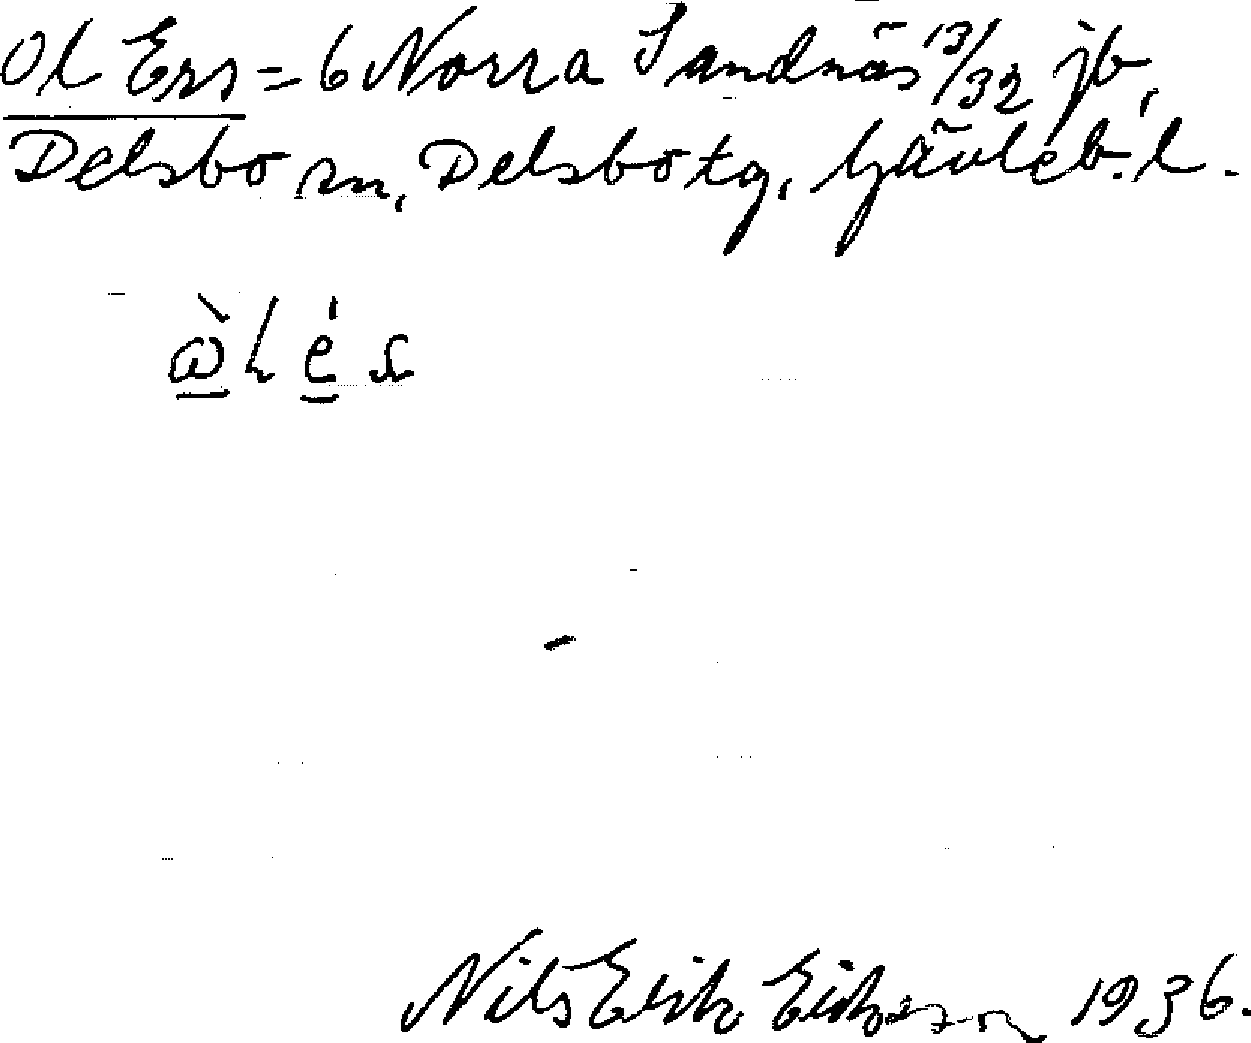 Ol Ers = 6 Norra Sandnäs 13/32 jb,
Delsbo sn, Delsbo tg, Gävleb. l.
Nils Erik Erikson 1936.